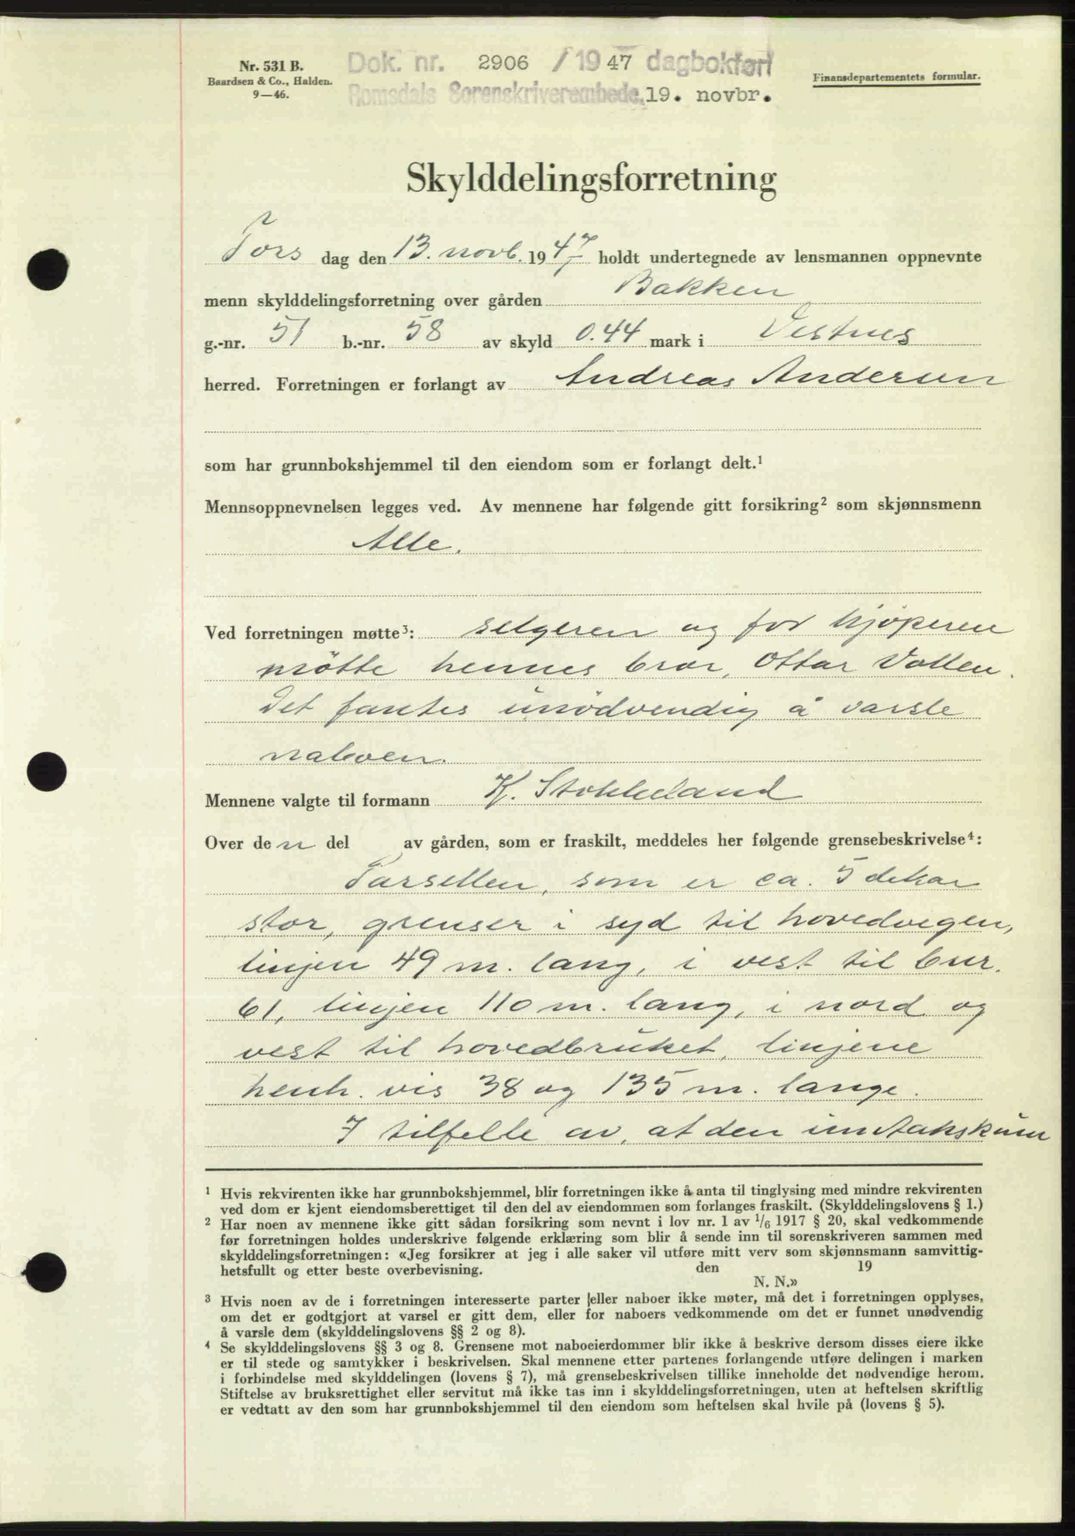 Nr. 531 B.
Baardsen & Co., Halden.
9—46.
Dok. nr. 2906 / 1947 dagbokført
Romsdals Sorenskriverembede, 19. novbr.
Finansdepartementets formular.
Skylddelingsforretning
Tors dag den 13. novb. 1947 holdt undertegnede av lensmannen oppnevnte
menn skylddelingsforretning over gården Bakken
g.-nr. 51 b.-nr. 58 av skyld 0.44 mark i Vestnes
herred. Forretningen er forlangt av Andreas Andersen
som har grunnbokshjemmel til den eiendom som er forlangt delt.¹
Mennsoppnevnelsen legges ved. Av mennene har følgende gitt forsikring² som skjønnsmenn
Alle.
Ved forretningen møtte³: selgeren og for kjøperen
møtte hennes bror, Ottar Vollen.
Det fantes unødvendig å varsle
naboen.
Mennene valgte til formann K. Stokkeland
Over den del av gården, som er fraskilt, meddeles her følgende grensebeskrivelse⁴:
Parsellen, som er ca. 5 dekar
stor, grenser i syd til hovedvegen,
linjen 49 m. lang, i vest til bnr.
61, linjen 110 m. lang, i nord og
vest til hovedbruket, linjene
henh. vis 38 og 135 m. lange.
I tilfelle av, at den
¹ Hvis rekvirenten ikke har grunnbokshjemmel, blir forretningen ikke å anta til tinglysing med mindre rekvirenten
ved dom er kjent eiendomsberettiget til den del av eiendommen som forlanges fraskilt. (Skylddelingslovens § 1.)
² Har noen av mennene ikke gitt sådan forsikring som nevnt i lov nr. 1 av 1/6 1917 § 20, skal vedkommende
før forretningen holdes underskrive følgende erklæring som blir å sende inn til sorenskriveren sammen med
skylddelingsforretningen: «Jeg forsikrer at jeg i alle saker vil utføre mitt verv som skjønnsmann samvittig-
hetsfullt og etter beste overbevisning. den 19
N. N.»
³ Hvis noen av de i forretningen interesserte parter eller naboer ikke møter, må det i forretningen opplyses,
om det er godtgjort at varsel er gitt dem, eller for naboers vedkommende om det er funnet unødvendig
å varsle dem (skylddelingslovens §§ 2 og 8).
⁴ Se skylddelingslovens §§ 3 og 8. Grensene mot naboeierdommer blir ikke å beskrive dersom disses eiere ikke
er til stede og samtykker i beskrivelsen. Skal mennene etter partenes forlangende utføre delingen i marken
i forbindelse med skylddelingen (lovens § 7), må grensebeskrivelsen tillike inneholde det nødvendige herom.
Stiftelse av bruksrettighet eller servitut må ikke tas inn i skylddelingsforretningen, uten at heftelsen skriftlig
er vedtatt av den som har grunnbokshjemmel til den eiendom som heftelsen skal hvile på (lovens § 5).